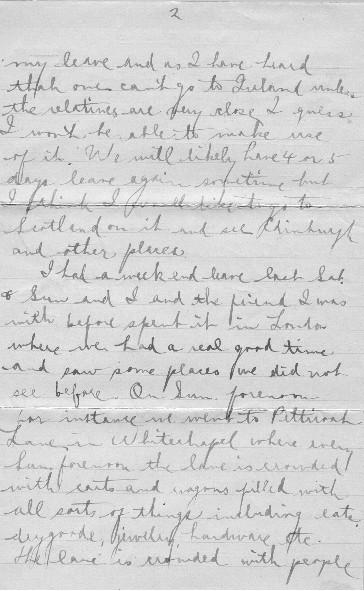 2
my leave and as I have heard
that one can't go to Ireland unless
the relatives are very close I guess
I won't be able to make use
of it. We will likely have 4 or 5
days leave again sometime but
I think I would like to go to
Scotland on it and see Edinburgh
and other places.
I had a week end leave last Sat.
& Sun and I and the friend I was
with before spent it in London
where we had a real good time
and saw some places we did not
see before. On Sun. forenoon
for instance we went to Petticoat
Lane in Whitechapel where every
Sun forenoon the lane is crowded
with carts and wagons filled with
all sorts of things including eats,
drygoods, jewelry, hardware etc.
The lane is crowded with people